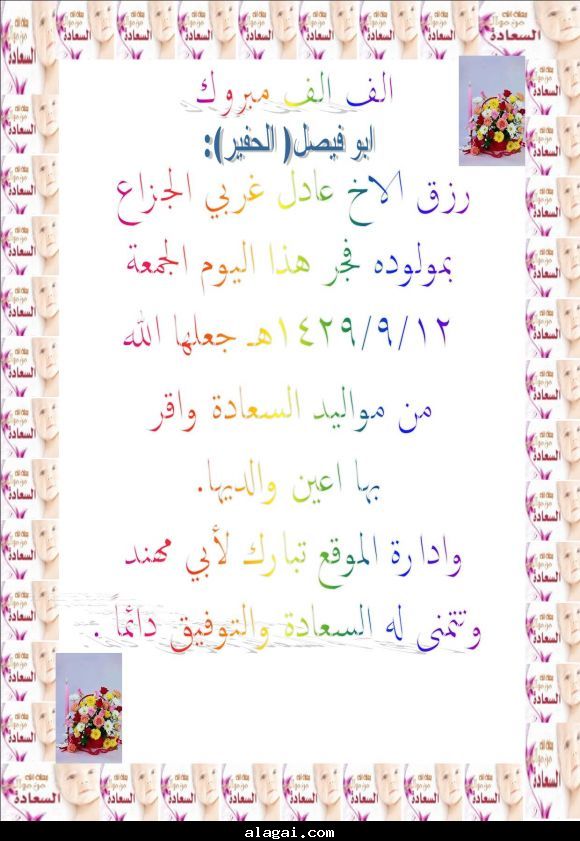 الف الف مبروك
ابو فيصل( الحفير):
رزق الاخ عادل غربي الجزاع
بمولوده فجر هذا اليوم الجمعة
١٤٢٩/٩/١٢هـ جعلها الله
من مواليد السعادة واقر
بها اعين والديها.
وادارة الموقع تبارك لأبي مهند
وتتمنى له السعادة والتوفيق دائما .
alagai.com